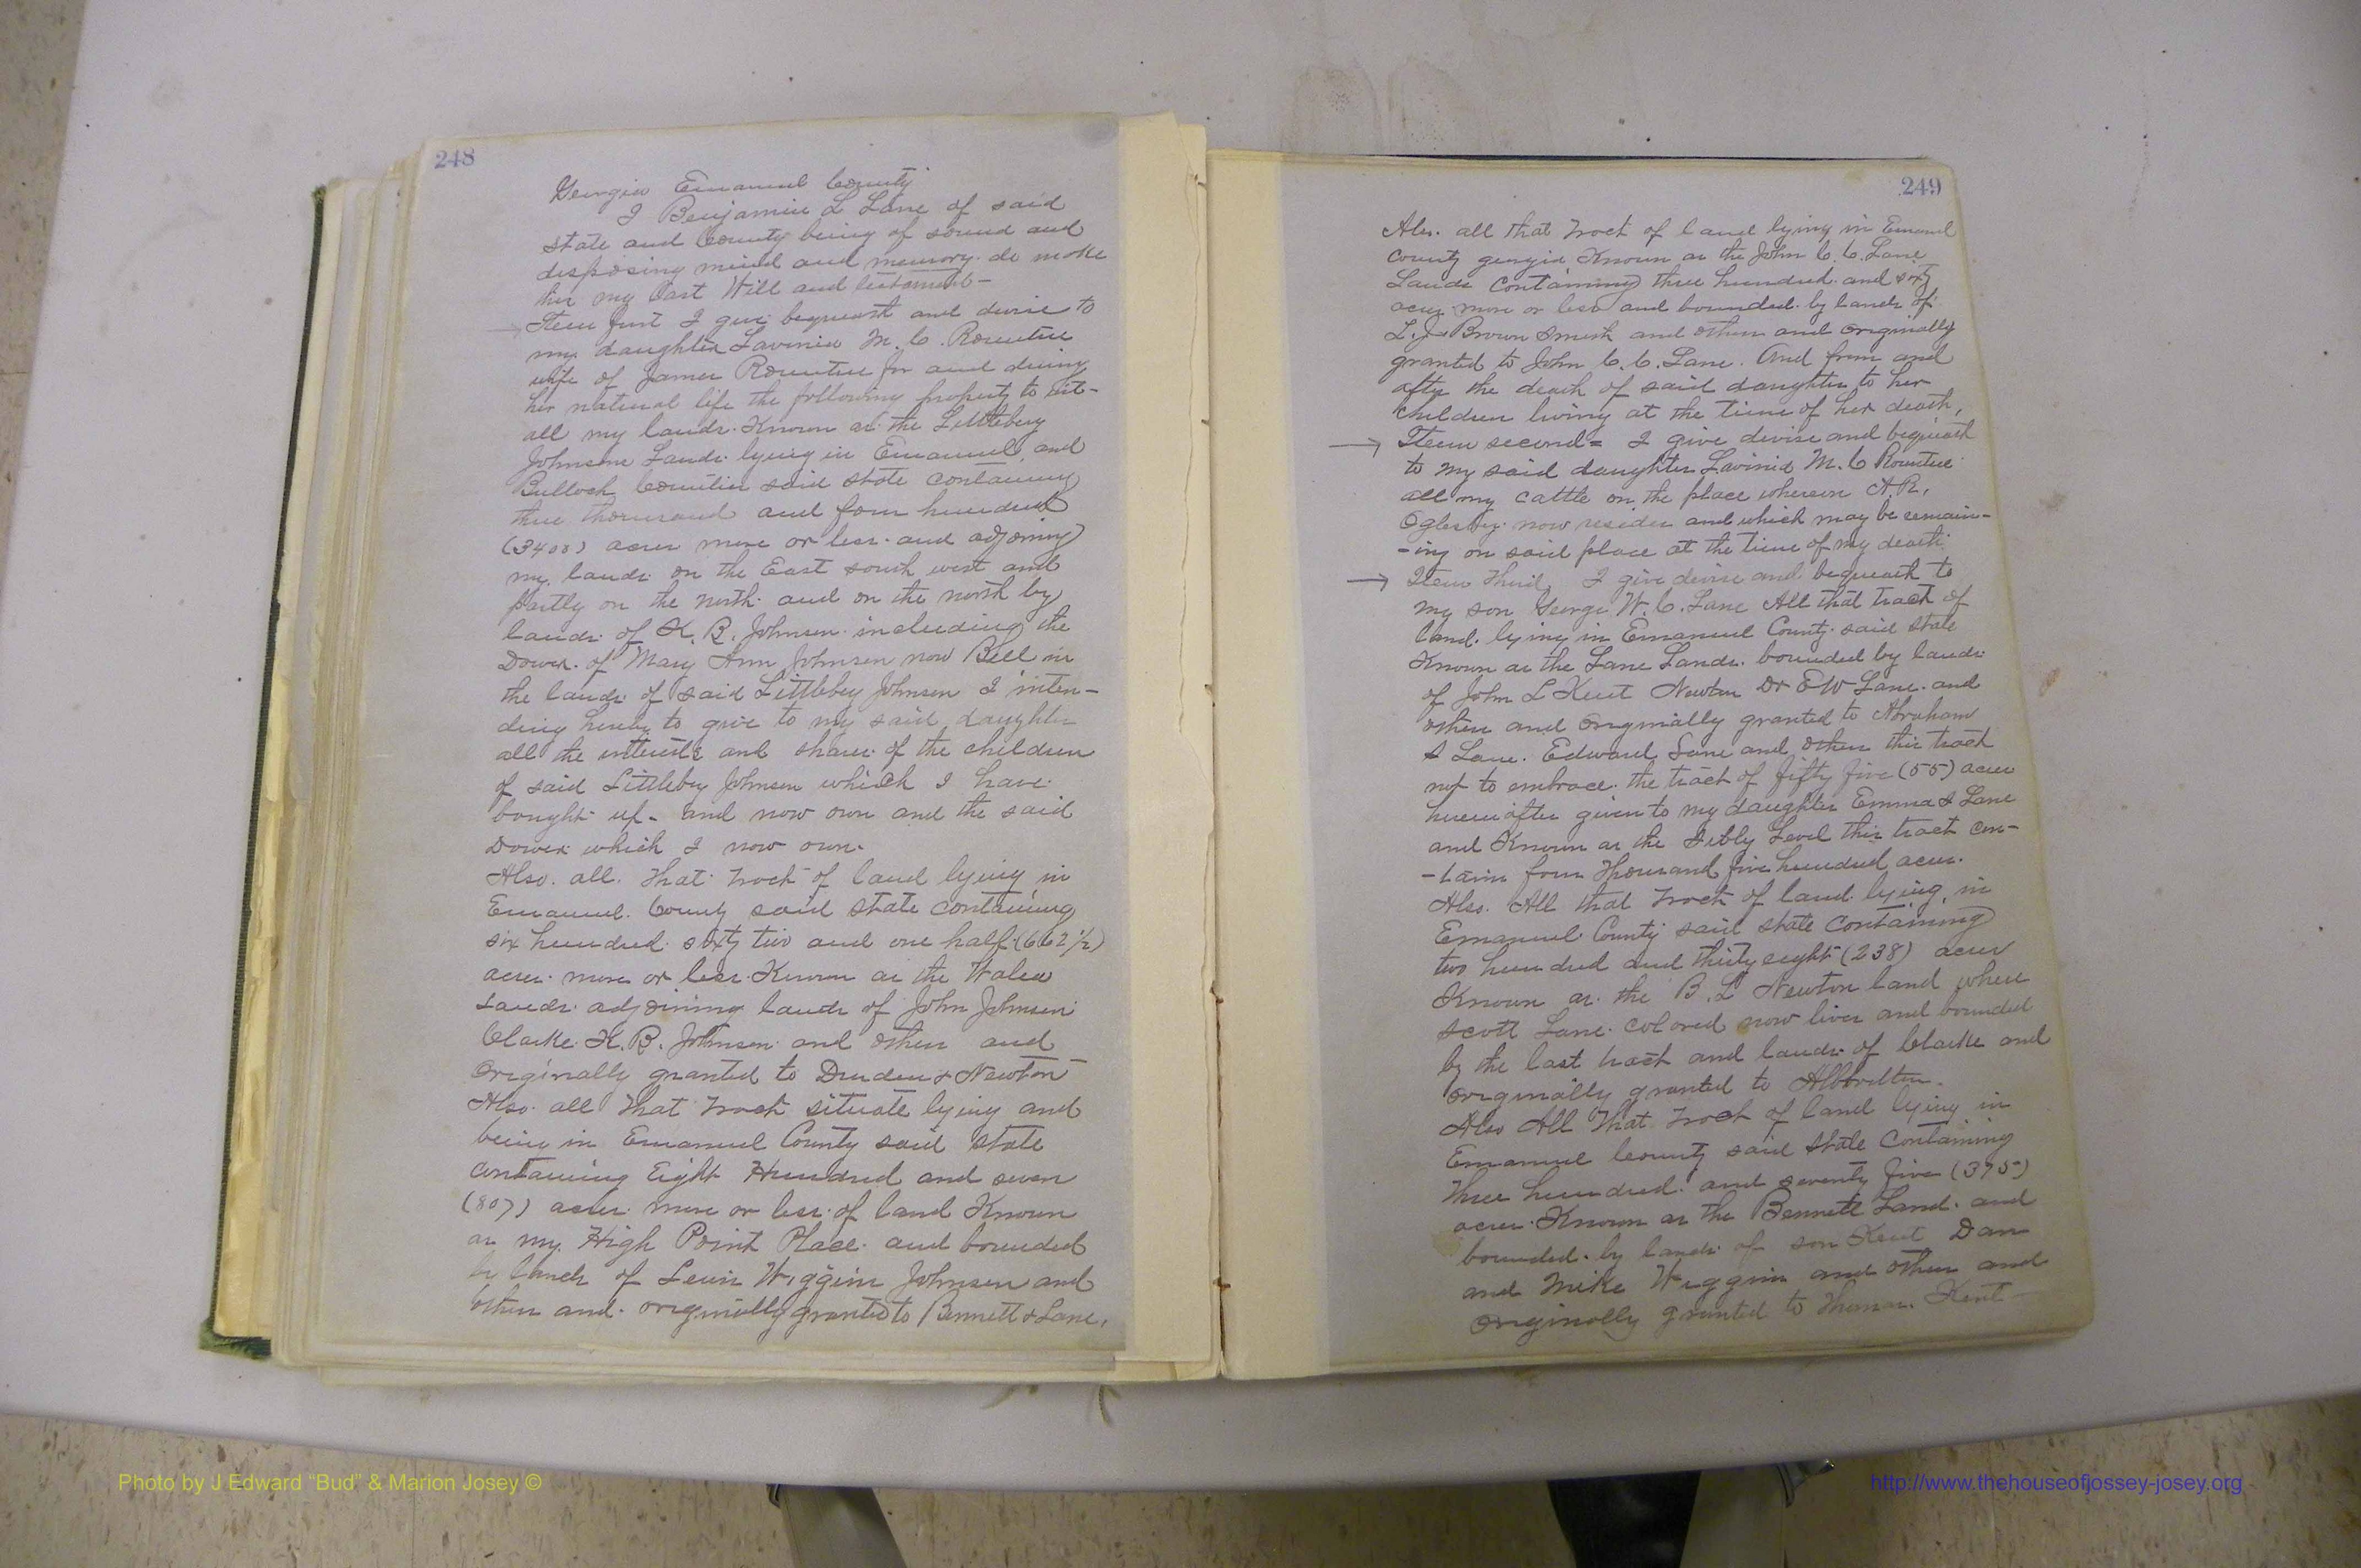 248
Georgia Emanuel County
I Benjamin L Lane of said
state and County being of sound and
disposing mind and memory do make
this my last Will and testament -
Item first I give bequeath and devise to
my daughter Lavinia M. C. Rountree
wife of James Rountree Jr and during
her natural life the following property to wit-
all my lands Known as the Littlebery
Johnson Lands lying in Emanuel and
Bulloch Counties said state containing
three thousand and four hundred
(3400) acres more or less and adjoining
my lands on the East south west and
partly on the north and on the north by
lands of K. B. Johnson including the
Dower of Mary Ann Johnson now Bell in
the lands of said Littlebey Johnson I inten-
ding hereby to give to my said daughter
all the interests and shares of the children
of said Littleby Johnson which I have
bought up - and now own and the said
Dower which I now own.
Also all that track of land lying in
Emanuel County said state containing
six hundred sixty two and one half (662 1/2)
acres more or less Known as the Wales
Lands adjoining lands of John Johnson
Clarke K. B. Johnson and others and
Originally granted to Durden & Newton
Also all that track situate lying and
being in Emanuel County said state
containing Eight Hundred and seven
(807) acres more or less of land Known
as my High Point Place and bounded
by lands of Lewis Wiggins Johnson and
others and originally granted to Bennett & Lane,
249
Also all that track of land lying in Emanuel
County georgia Known as the John C. C. Lane
Lands containing three hundred and sixty
acres more or less and bounded by lands of
L. J. Brown and others and originally
granted to John C. C. Lane. And from and
after the death of said daughter to her
children living at the time of her death,
Item second = I give devise and bequeath
to my said daughter Lavinia M. C Rountree
all my cattle on the place whereon A. R.
Oglesby now resides and which may be remain-
-ing on said place at the time of my death
Item Third I give devise and bequeath to
my son George W. C. Lane All that tract of
land lying in Emanuel County said state
Known as the Lane Lands bounded by lands
of John L Kent Newton Dr E W Lane and
others and Originally granted to Abraham
S Lane. Edward Lane and others this track
not to embrace the tract of fifty five (55) acres
hereinafter given to my daughter Emma S Lane
and Known as the Sibly Level this tract con-
-tains four Thousand five hundred acres.
Also All that track of land lying in
Emanuel County said state containing
two hundred and thirty eight (238) acres
Known as the B. L Newton land where
Scott Lane colored now lives and bounded
by the last track and lands of Clarke and
originally granted to Albritton.
Also All That track of land lying in
Emanuel County said state containing
Three hundred and seventy five (375)
acres Known as the Bennett Land and
bounded by lands of son Kent Dan
and Mike Wiggins and others and
Originally granted to Thomas Kent
Photo by J Edward “Bud” & Marion Josey ©
http://www.thehouseofjossey-josey.org